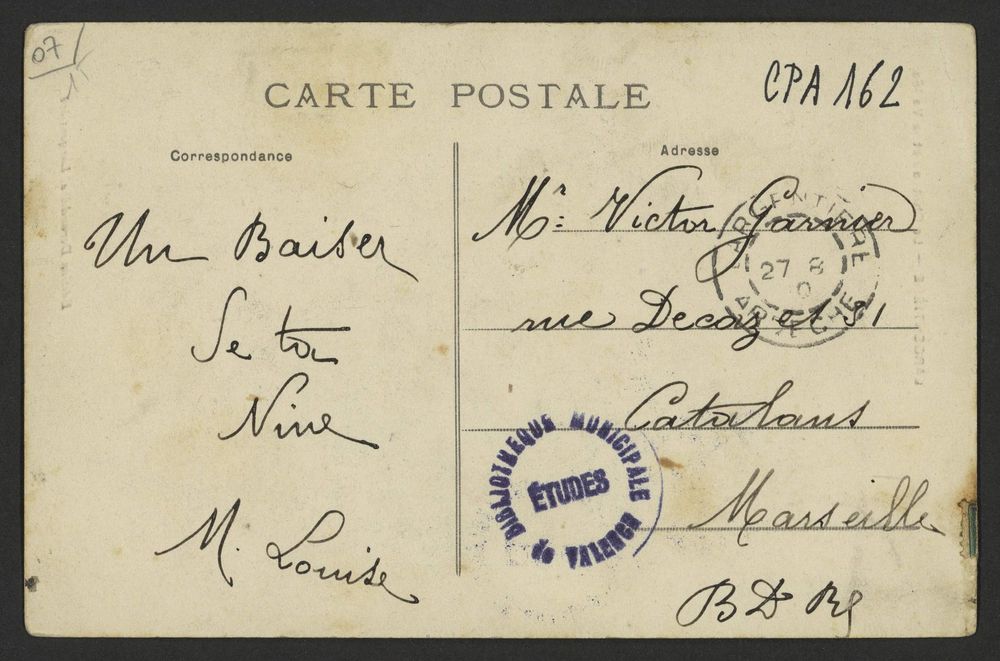 07
CARTE POSTALE
CPA 162
Correspondance
Un Baiser
Se ta
Nine
M. Louise
Adresse
Mr: Victor Garnier
rue Decazet 51
Catalans
Marseille
B D R
LARGENTIERE
27 8
0
ARDECHE
BIBLIOTHEQUE MUNICIPALE
ÉTUDES
de VALENCE